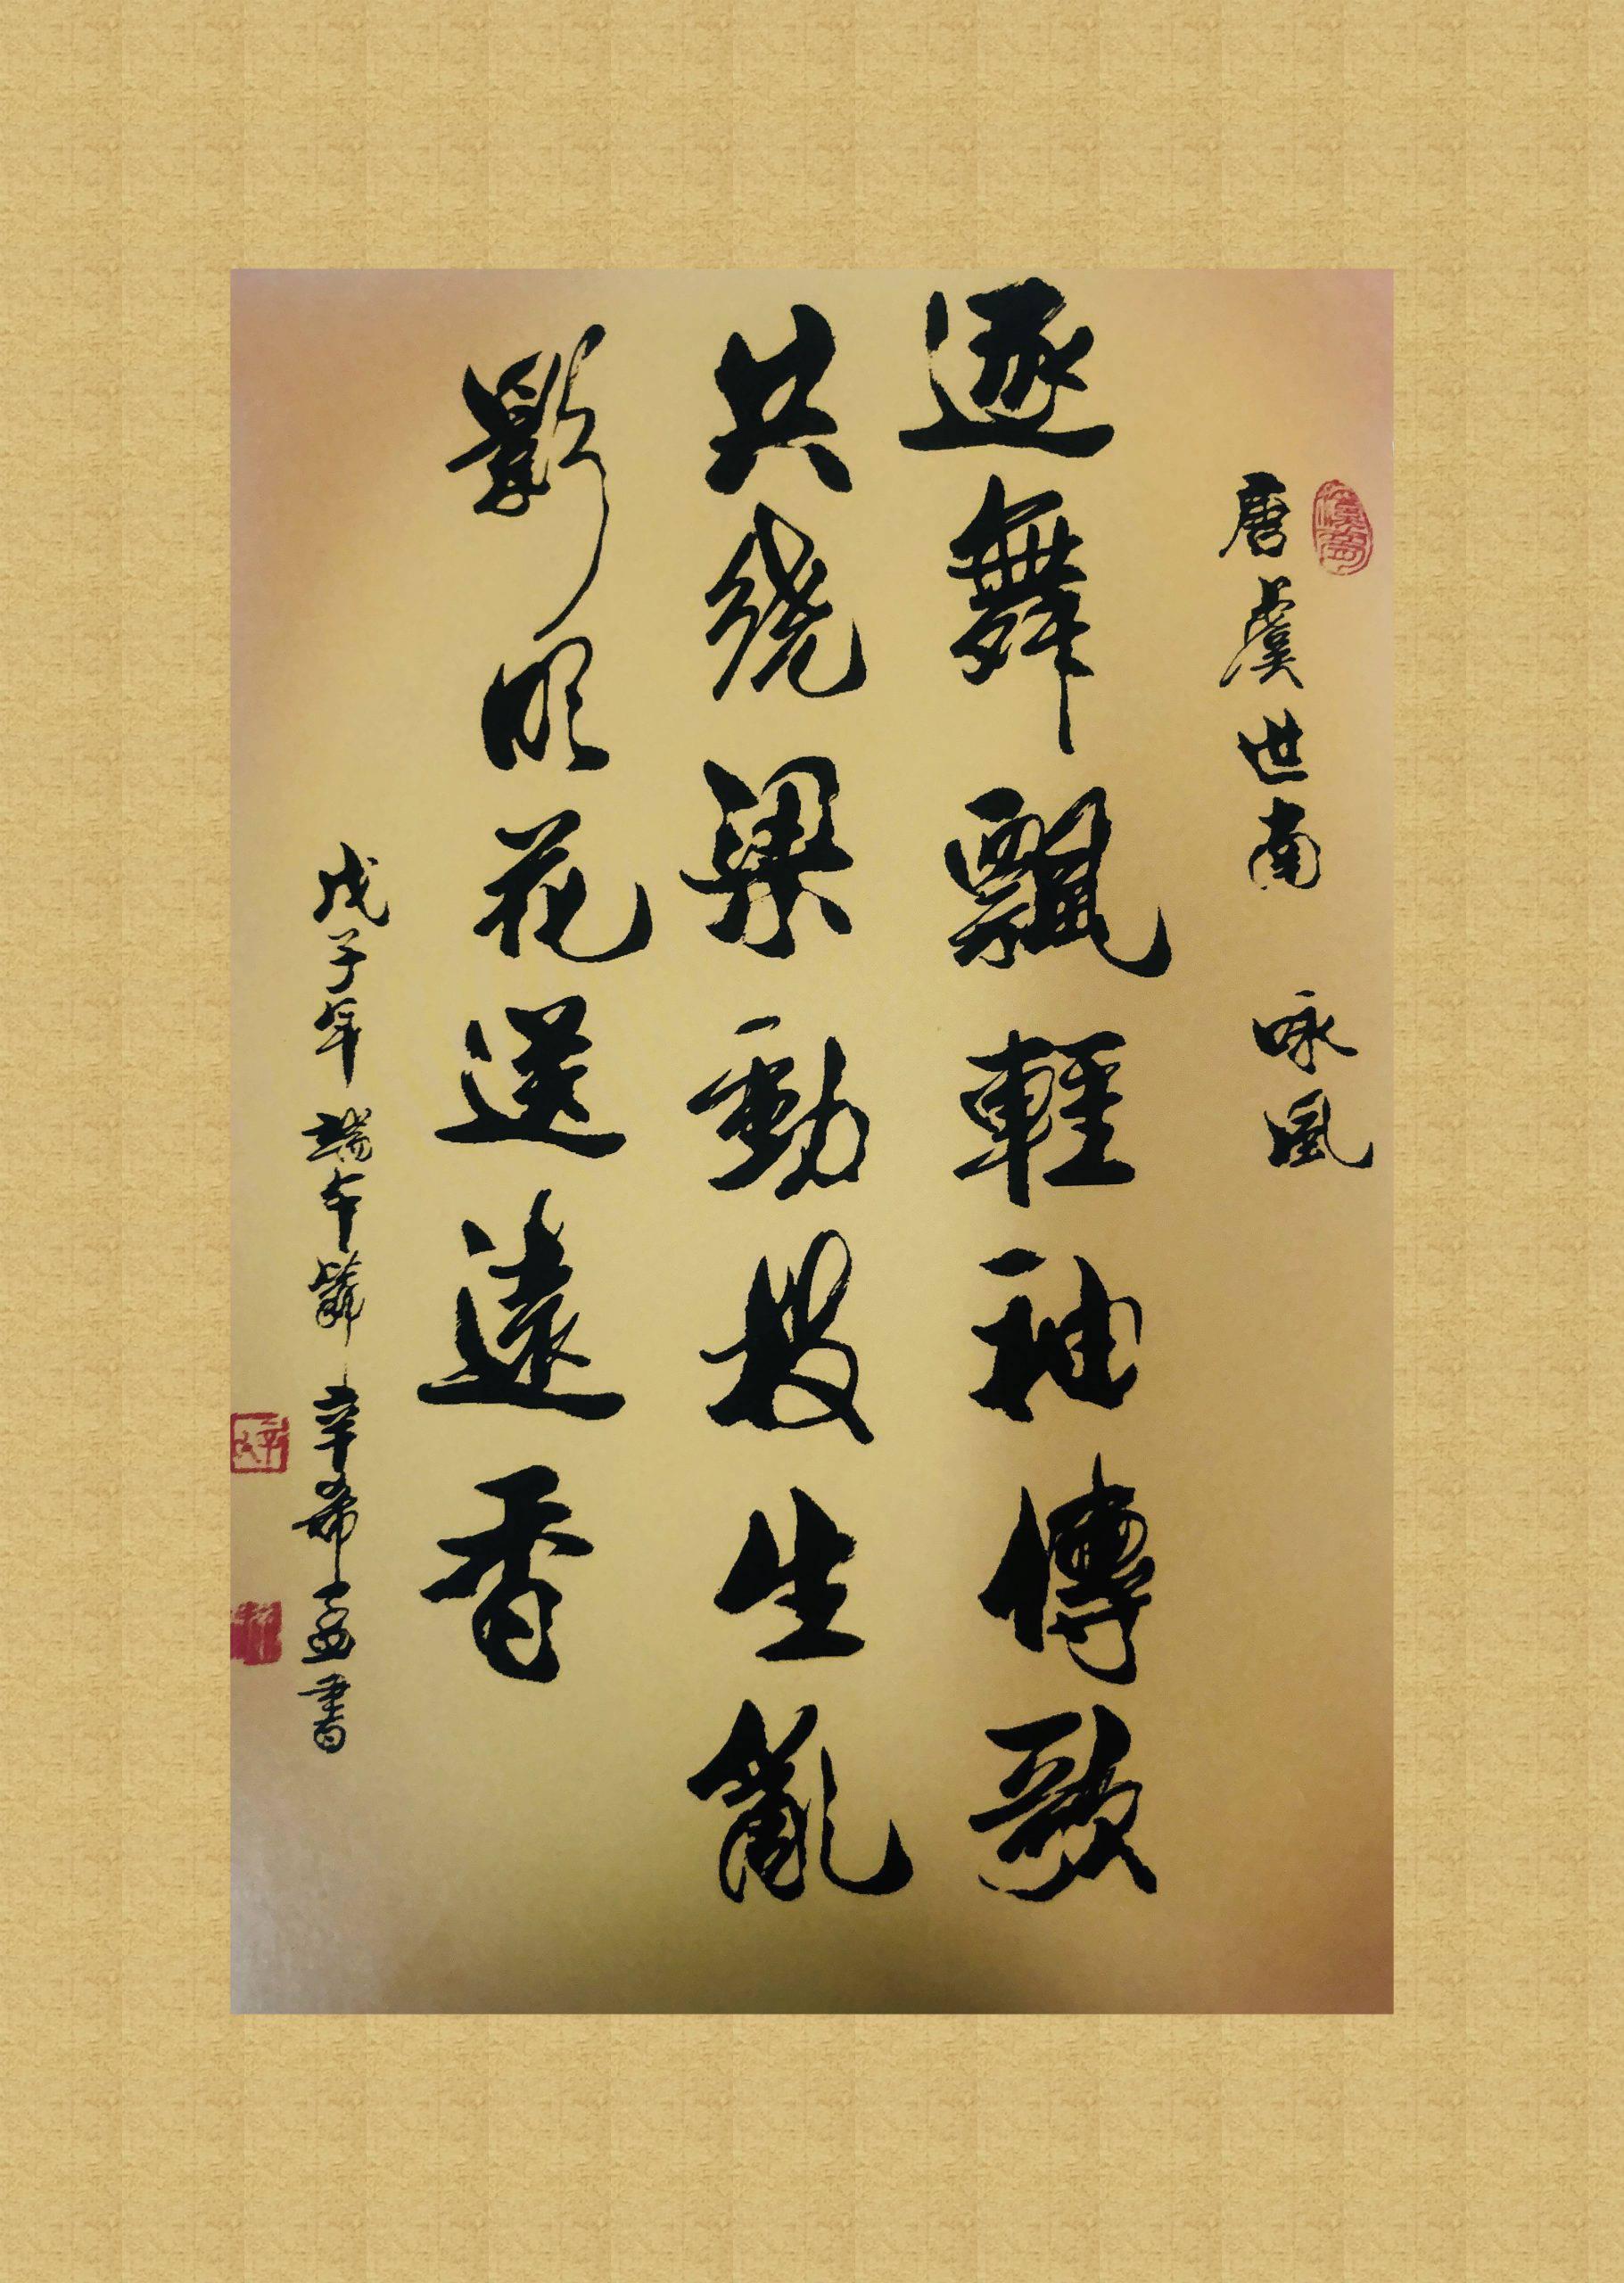 唐虞世南 咏風
逐舞飄輕袖傳歌
共绕梁動枝生亂
影吹花送遠香
戊子年端午節辛希孟書